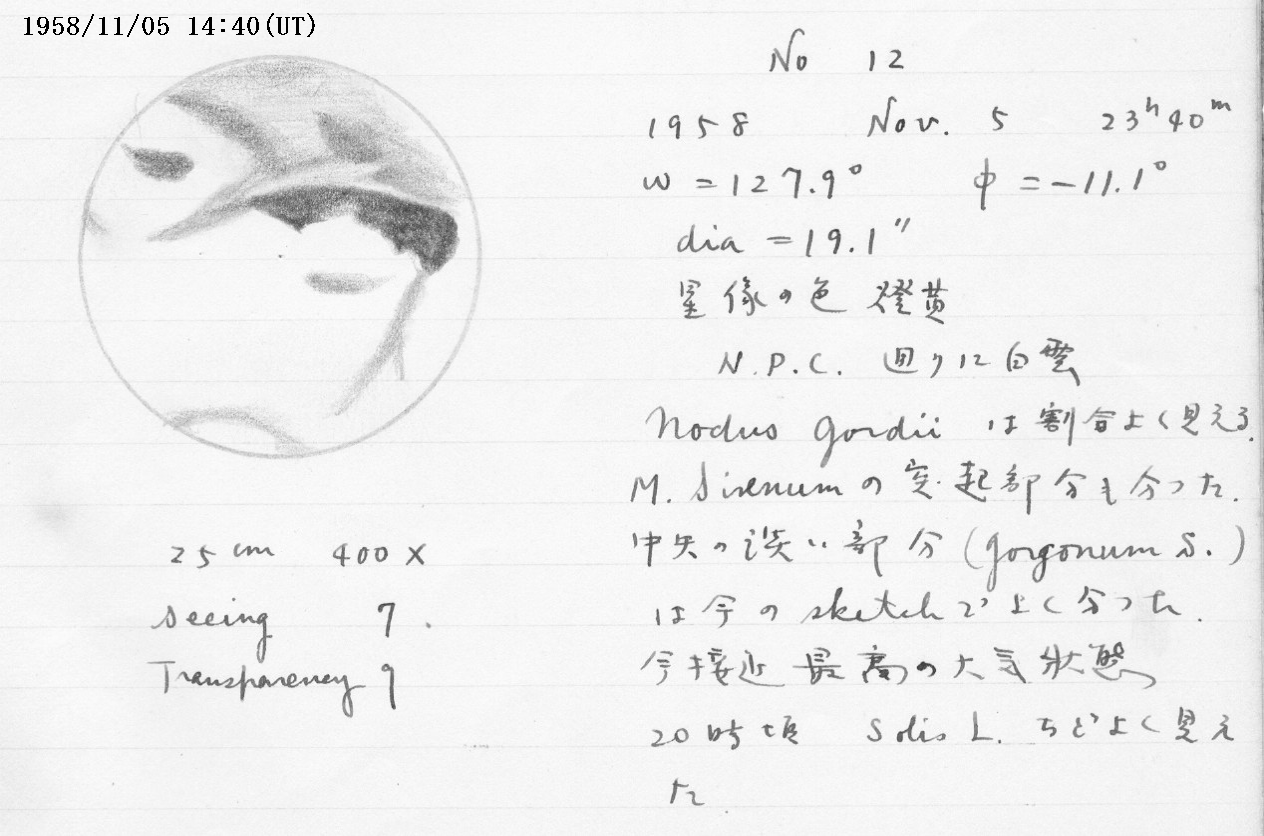 1958/11/05 14:40(UT)
No 12
1958 Nov. 5 23h 40m
ω = 127.9° φ = -11.1°
dia = 19.1"
星像の色 燈黄
N.P.C. 囲りに白雲
Nodus Gordii は割合よく見える.
M. Sirenumの突起部分も分った.
中央の淡い部分(Gorgonum S.)
は今のsketchでよく分った.
今接近最高の大気状態
20時頃 Solis L. などよく見え
た
25cm 400×
Seeing 7.
Transparency 9